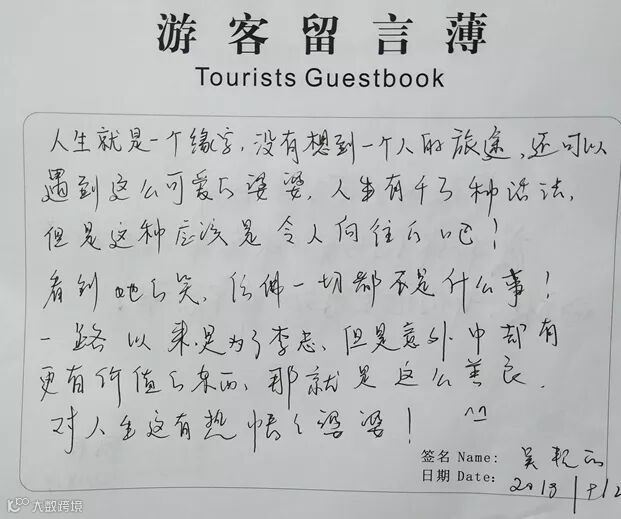 游客留言薄
Tourists Guestbook
人生就是一个缘字,没有想到一个人的旅途,还可以
遇到这么可爱的婆婆,人生有千万种活法,
但是这种应该是令人向往的吧!
看到她的笑、仿佛一切都不是什么事!
一路以来是为了李忠、但是意外中却有
更有价值的东西、那就是这么善良、
对人生这有热情的婆婆! ^^
签名 Name: 吴
日期 Date: 2013
大数跨境